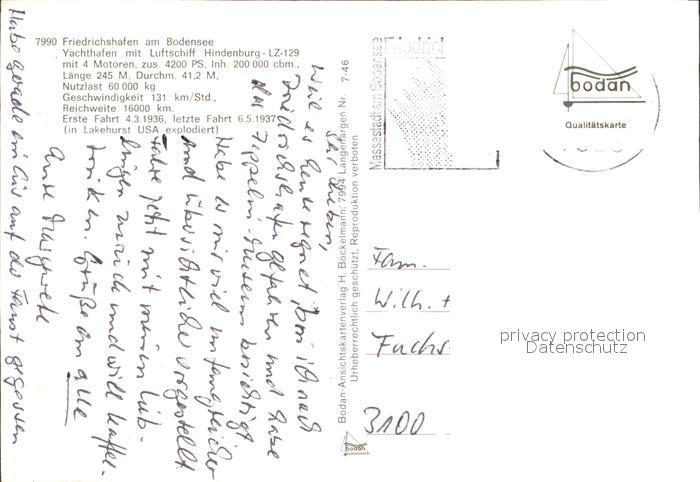 7990 Friedrichshafen am Bodensee
Yachthafen mit Luftschiff Hindenburg - LZ-129
mit 4 Motoren, zus. 4200 PS, Inh. 200 000 cbm.,
Länge 245 M, Durchm. 41,2 M,
Nutzlast 60 000 kg
Geschwindigkeit 131 km/Std.,
Reichweite 16000 km.
Erste Fahrt 4.3.1936, letzte Fahrt 6.5.1937
(in Lakehurst USA explodiert)
Ihr Lieben,
weil es heute regnet, bin ich nach
Friedrichshafen gefahren und habe
das Zeppelin-Museum besichtigt
Habe es mir viel umfangreicher
und übersichtlicher vorgestellt
fahre jetzt mit meinem
zurück und will Kaffee
trinken. Grüße an alle
Eure Margarete
Habe gerade ein Eis auf der Faust gegessen
Bodan-Ansichtskartenverlag H. Bockelmann, 7994 Langenargen Nr. 7-46
Urheberrechtlich geschützt, Reproduktion verboten
bodan
Messestadt am Bodensee
Friedrich
bodan
Qualitätskarte
Fam.
Wilh. +
Fuchs
3100
privacy protection
Datenschutz